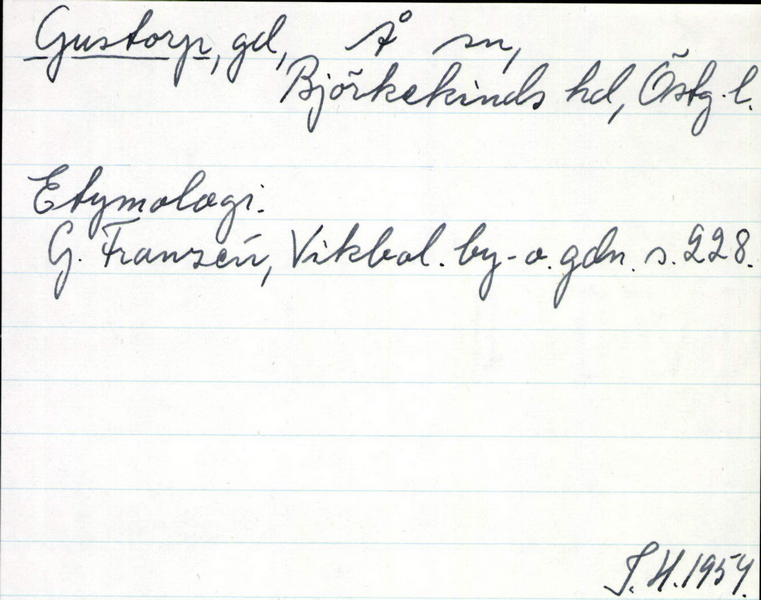 Gustorp, gd, Å sn,
Björkekinds hd, Östg. l.
Etymologi.
G. Franzén, Vikbol. by- o. gdn. s. 228.
T. H. 1954.